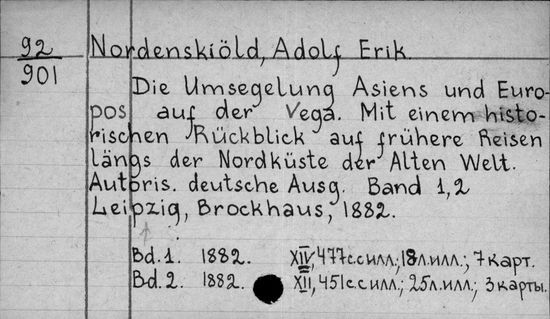 92
901
Nordenskiöld, Adolf Erik.
Die Umsegelung Asiens und Euro-
pos auf der Vega. Mit einem histo-
rischen Rückblick auf frühere Reisen
längs der Nordküste der Alten Welt.
Autoris. deutsche Ausg. Band 1,2
Leipzig, Brockhaus, 1882.
Bd. 1. 1882. XIV, 477с.с илл.; 18л.илл.; 7 карт.
Bd. 2. 1882. XII, 451с.с илл.; 25л.илл.; 3 карты.